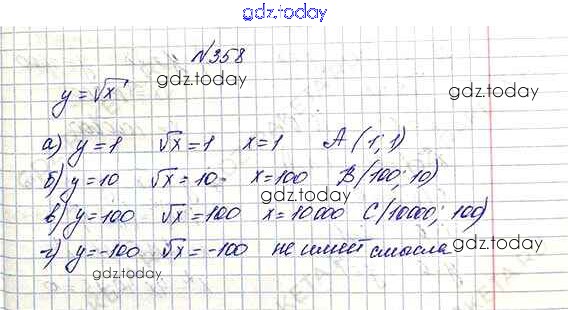 gdz.today
№358
gdz.today
y = √x
gdz.today
а) y = 1 √x = 1 x = 1 A (1; 1)
б) y = 10 √x = 10 x = 100 B (100; 10)
gdz.today
в) y = 100 √x = 100 x = 10000 C (10000; 100)
г) y = -100 √x = -100 не имеет смысла
gdz.today
gdz.today